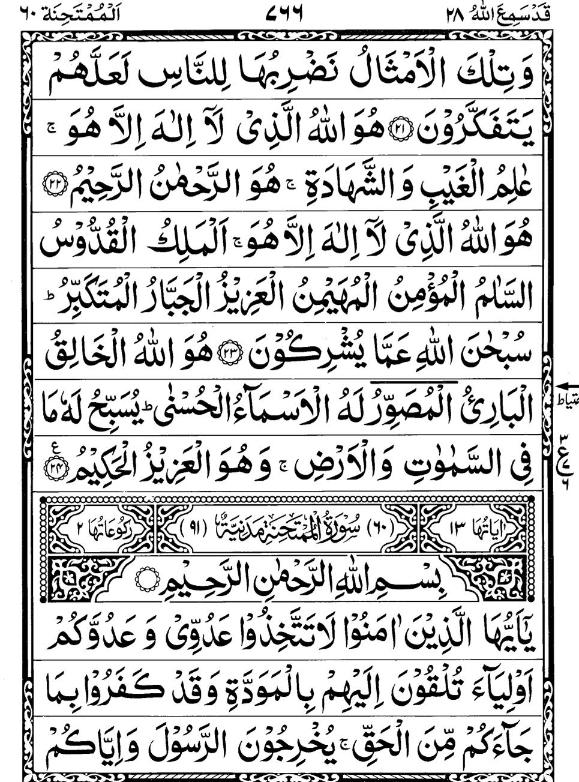 قَدْ سَمِعَ اللّٰهُ ٢٨ ٧٦٦ اَلْمُمْتَحِنَة ٦٠
وَتِلْكَ الْاَمْثَالُ نَضْرِبُهَا لِلنَّاسِ لَعَلَّهُمْ
يَتَفَكَّرُوْنَ ﴿٢١﴾ هُوَ اللّٰهُ الَّذِیْ لَاۤ اِلٰهَ اِلَّا هُوَ ۚ
عٰلِمُ الْغَيْبِ وَالشَّهَادَةِ ۚ هُوَ الرَّحْمٰنُ الرَّحِيْمُ ﴿٢٢﴾
هُوَ اللّٰهُ الَّذِیْ لَاۤ اِلٰهَ اِلَّا هُوَ ۚ اَلْمَلِكُ الْقُدُّوْسُ
السَّلٰمُ الْمُؤْمِنُ الْمُهَيْمِنُ الْعَزِيْزُ الْجَبَّارُ الْمُتَكَبِّرُ ؕ
سُبْحٰنَ اللّٰهِ عَمَّا يُشْرِكُوْنَ ﴿٢٣﴾ هُوَ اللّٰهُ الْخَالِقُ
الْبَارِئُ الْمُصَوِّرُ لَهُ الْاَسْمَآءُ الْحُسْنٰى ؕ يُسَبِّحُ لَهٗ مَا
فِی السَّمٰوٰتِ وَالْاَرْضِ ۚ وَهُوَ الْعَزِيْزُ الْحَكِيْمُ ﴿٢٤﴾ ع
٣
ع
٦
اٰيَاتُهَا ١٣ (٦٠) سُوْرَةُ الْمُمْتَحِنَةِ مَدَنِيَّةٌ (٩١) رُكُوْعَاتُهَا ٢
بِسْمِ اللّٰهِ الرَّحْمٰنِ الرَّحِيْمِ
يٰۤاَيُّهَا الَّذِيْنَ اٰمَنُوْا لَا تَتَّخِذُوْا عَدُوِّیْ وَعَدُوَّكُمْ
اَوْلِيَآءَ تُلْقُوْنَ اِلَيْهِمْ بِالْمَوَدَّةِ وَقَدْ كَفَرُوْا بِمَا
جَآءَكُمْ مِّنَ الْحَقِّ ۚ يُخْرِجُوْنَ الرَّسُوْلَ وَاِيَّاكُمْ